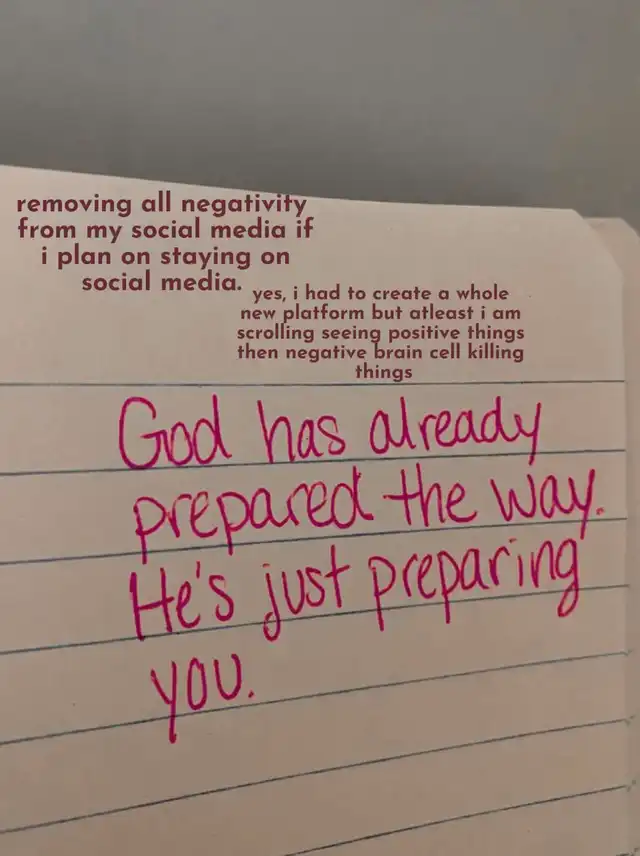 removing all negativity
from my social media if
i plan on staying on
social media.
yes, i had to create a whole
new platform but atleast i am
scrolling seeing positive things
then negative brain cell killing
things
God has already
prepared the way.
He's just preparing
you.